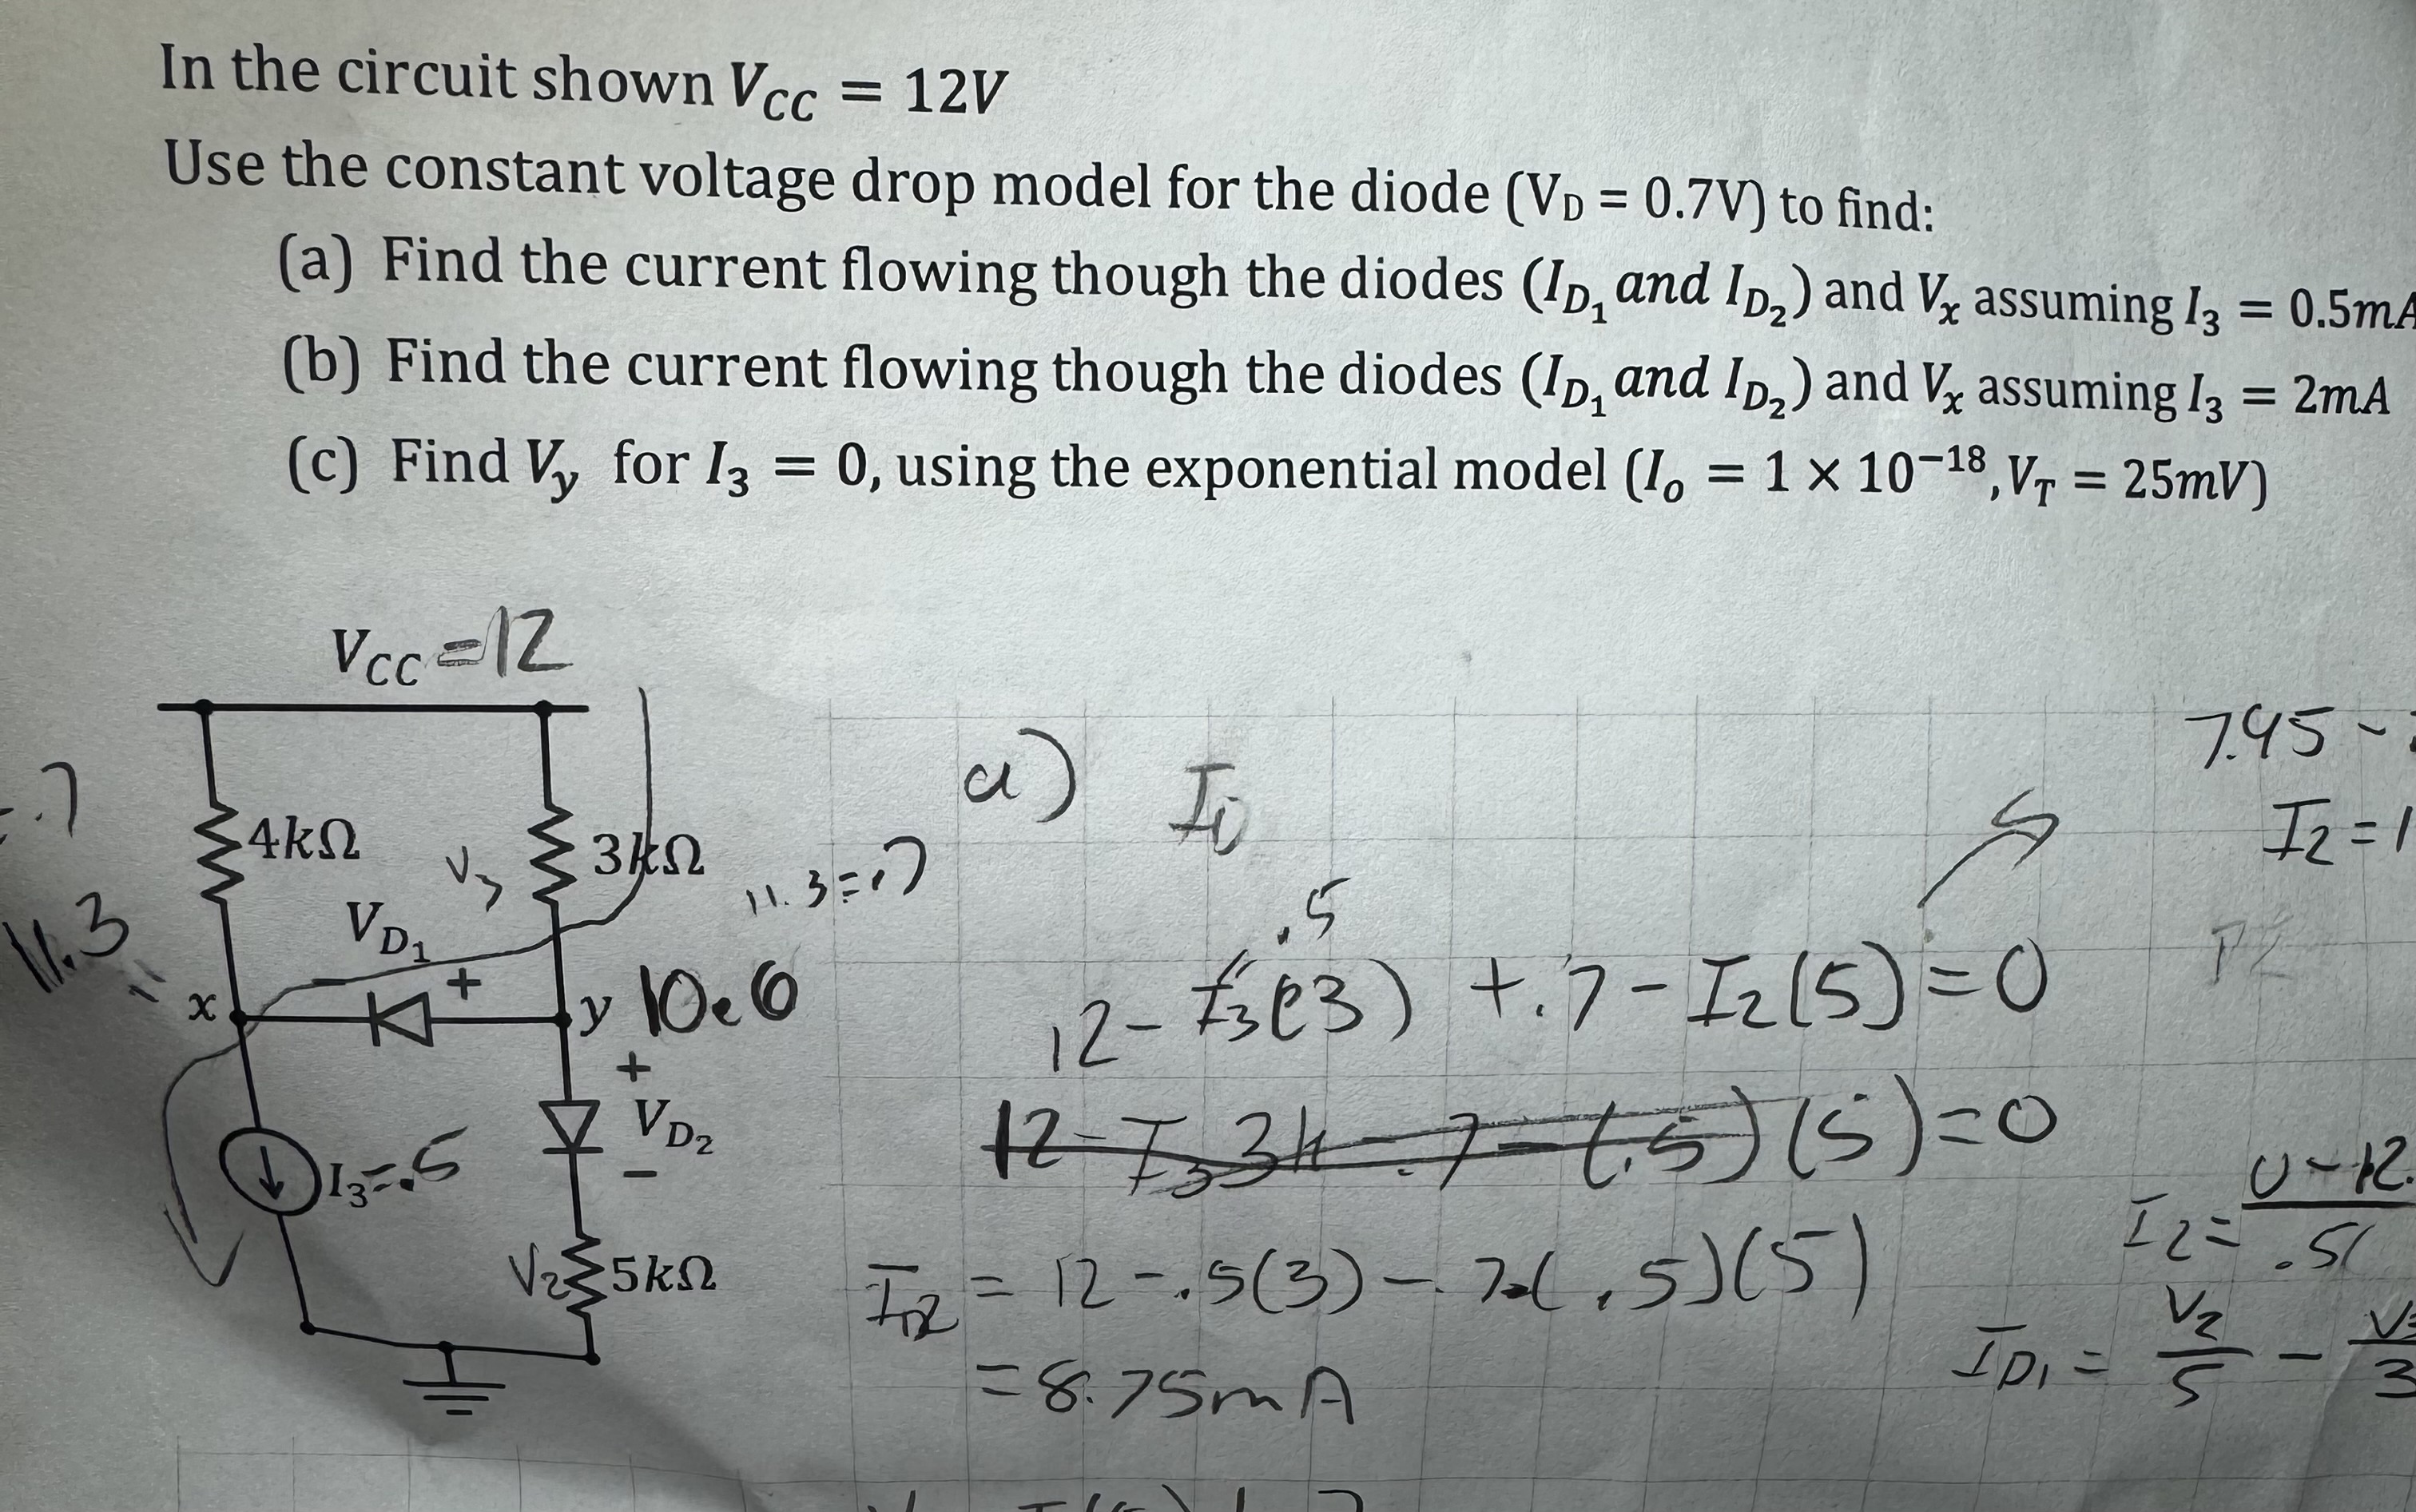 In the circuit shown V_CC = 12V
Use the constant voltage drop model for the diode (V_D = 0.7V) to find:
(a) Find the current flowing though the diodes (I_D₁ and I_D₂) and Vₓ assuming I₃ = 0.5mA
(b) Find the current flowing though the diodes (I_D₁ and I_D₂) and Vₓ assuming I₃ = 2mA
(c) Find V_y for I₃ = 0, using the exponential model (I_o = 1 × 10⁻¹⁸, V_T = 25mV)
V_CC =12
4kΩ
V₃
3kΩ
11.3=.7
.7
11.3
V_D₁
+
x
y 10.6
+
V_D₂
−
I₃=.5
V₂
5kΩ
a) I_D
.5
12 - I₃(3) + .7 - I₂(5) = 0
12 - I₃3k - .7 - (.5)(5) = 0
I_D2 = 12 - .5(3) - .7(.5)(5)
= 8.75mA
7.45 -
I₂ = 1
I₂ = 0 - 12.
.5(
I_D₁ = V₂/5 - V₃/3